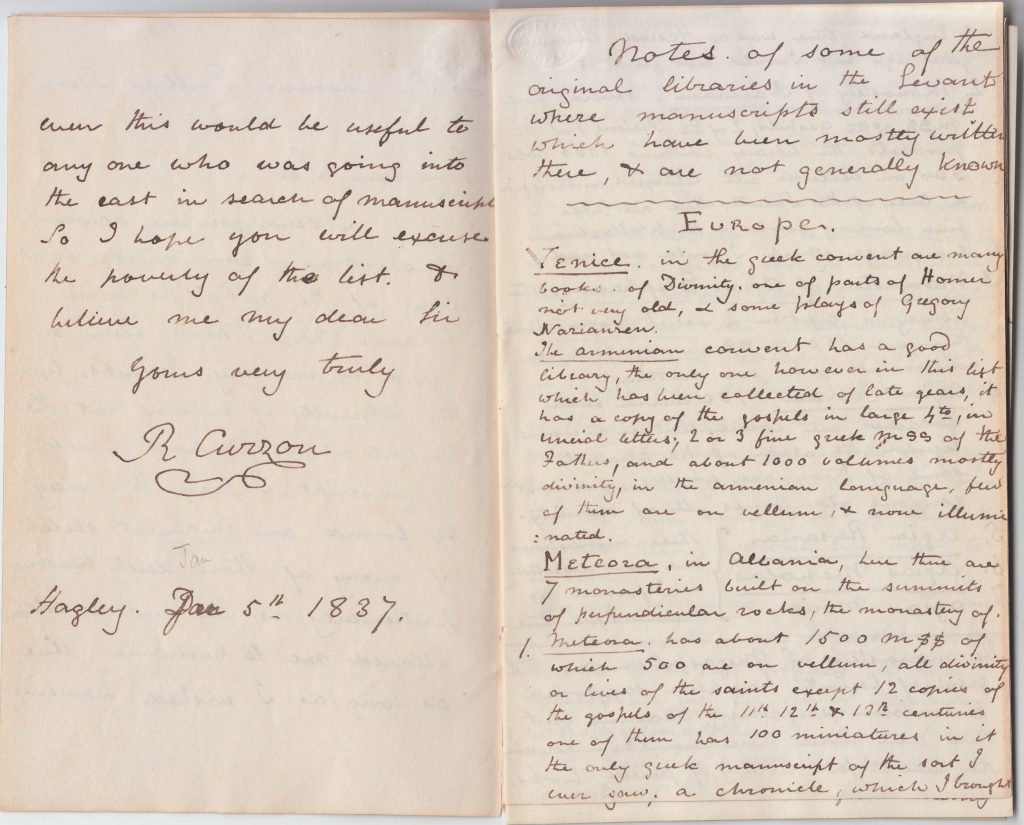 even this would be useful to
any one who was going into
the east in search of manuscript
So I hope you will excuse
the poverty of the list. &
believe me my dear Sir
Yours very truly
R Curzon
Jan
Hagley. Jan 5th 1837.
Notes of some of the
original libraries in the Levant
where manuscripts still exist
which have been mostly written
there, & are not generally known
Europe.
Venice. in the greek convent are many
books of Divinity. one of parts of Homer
not very old, & some plays of Gregory
Narianzen.
The armenian convent has a good
library, the only one however in this list
which has been collected of late years, it
has a copy of the gospels in large 4to, in
uncial letters; 2 or 3 fine greek mss of the
Fathers, and about 1000 volumes mostly
divinity, in the armenian language, few
of them are on vellum, & none illumi
:nated.
Meteora, in Albania, here there are
7 monasteries built on the summits
of perpendicular rocks, the monastery of.
1. Meteora. has about 1500 mss of
which 500 are on vellum, all divinity
or lives of the saints except 12 copies of
the gospels of the 11th 12th & 13th centuries
one of them has 100 miniatures in it
the only greek manuscript of the sort I
ever saw; a chronicle, which I brought